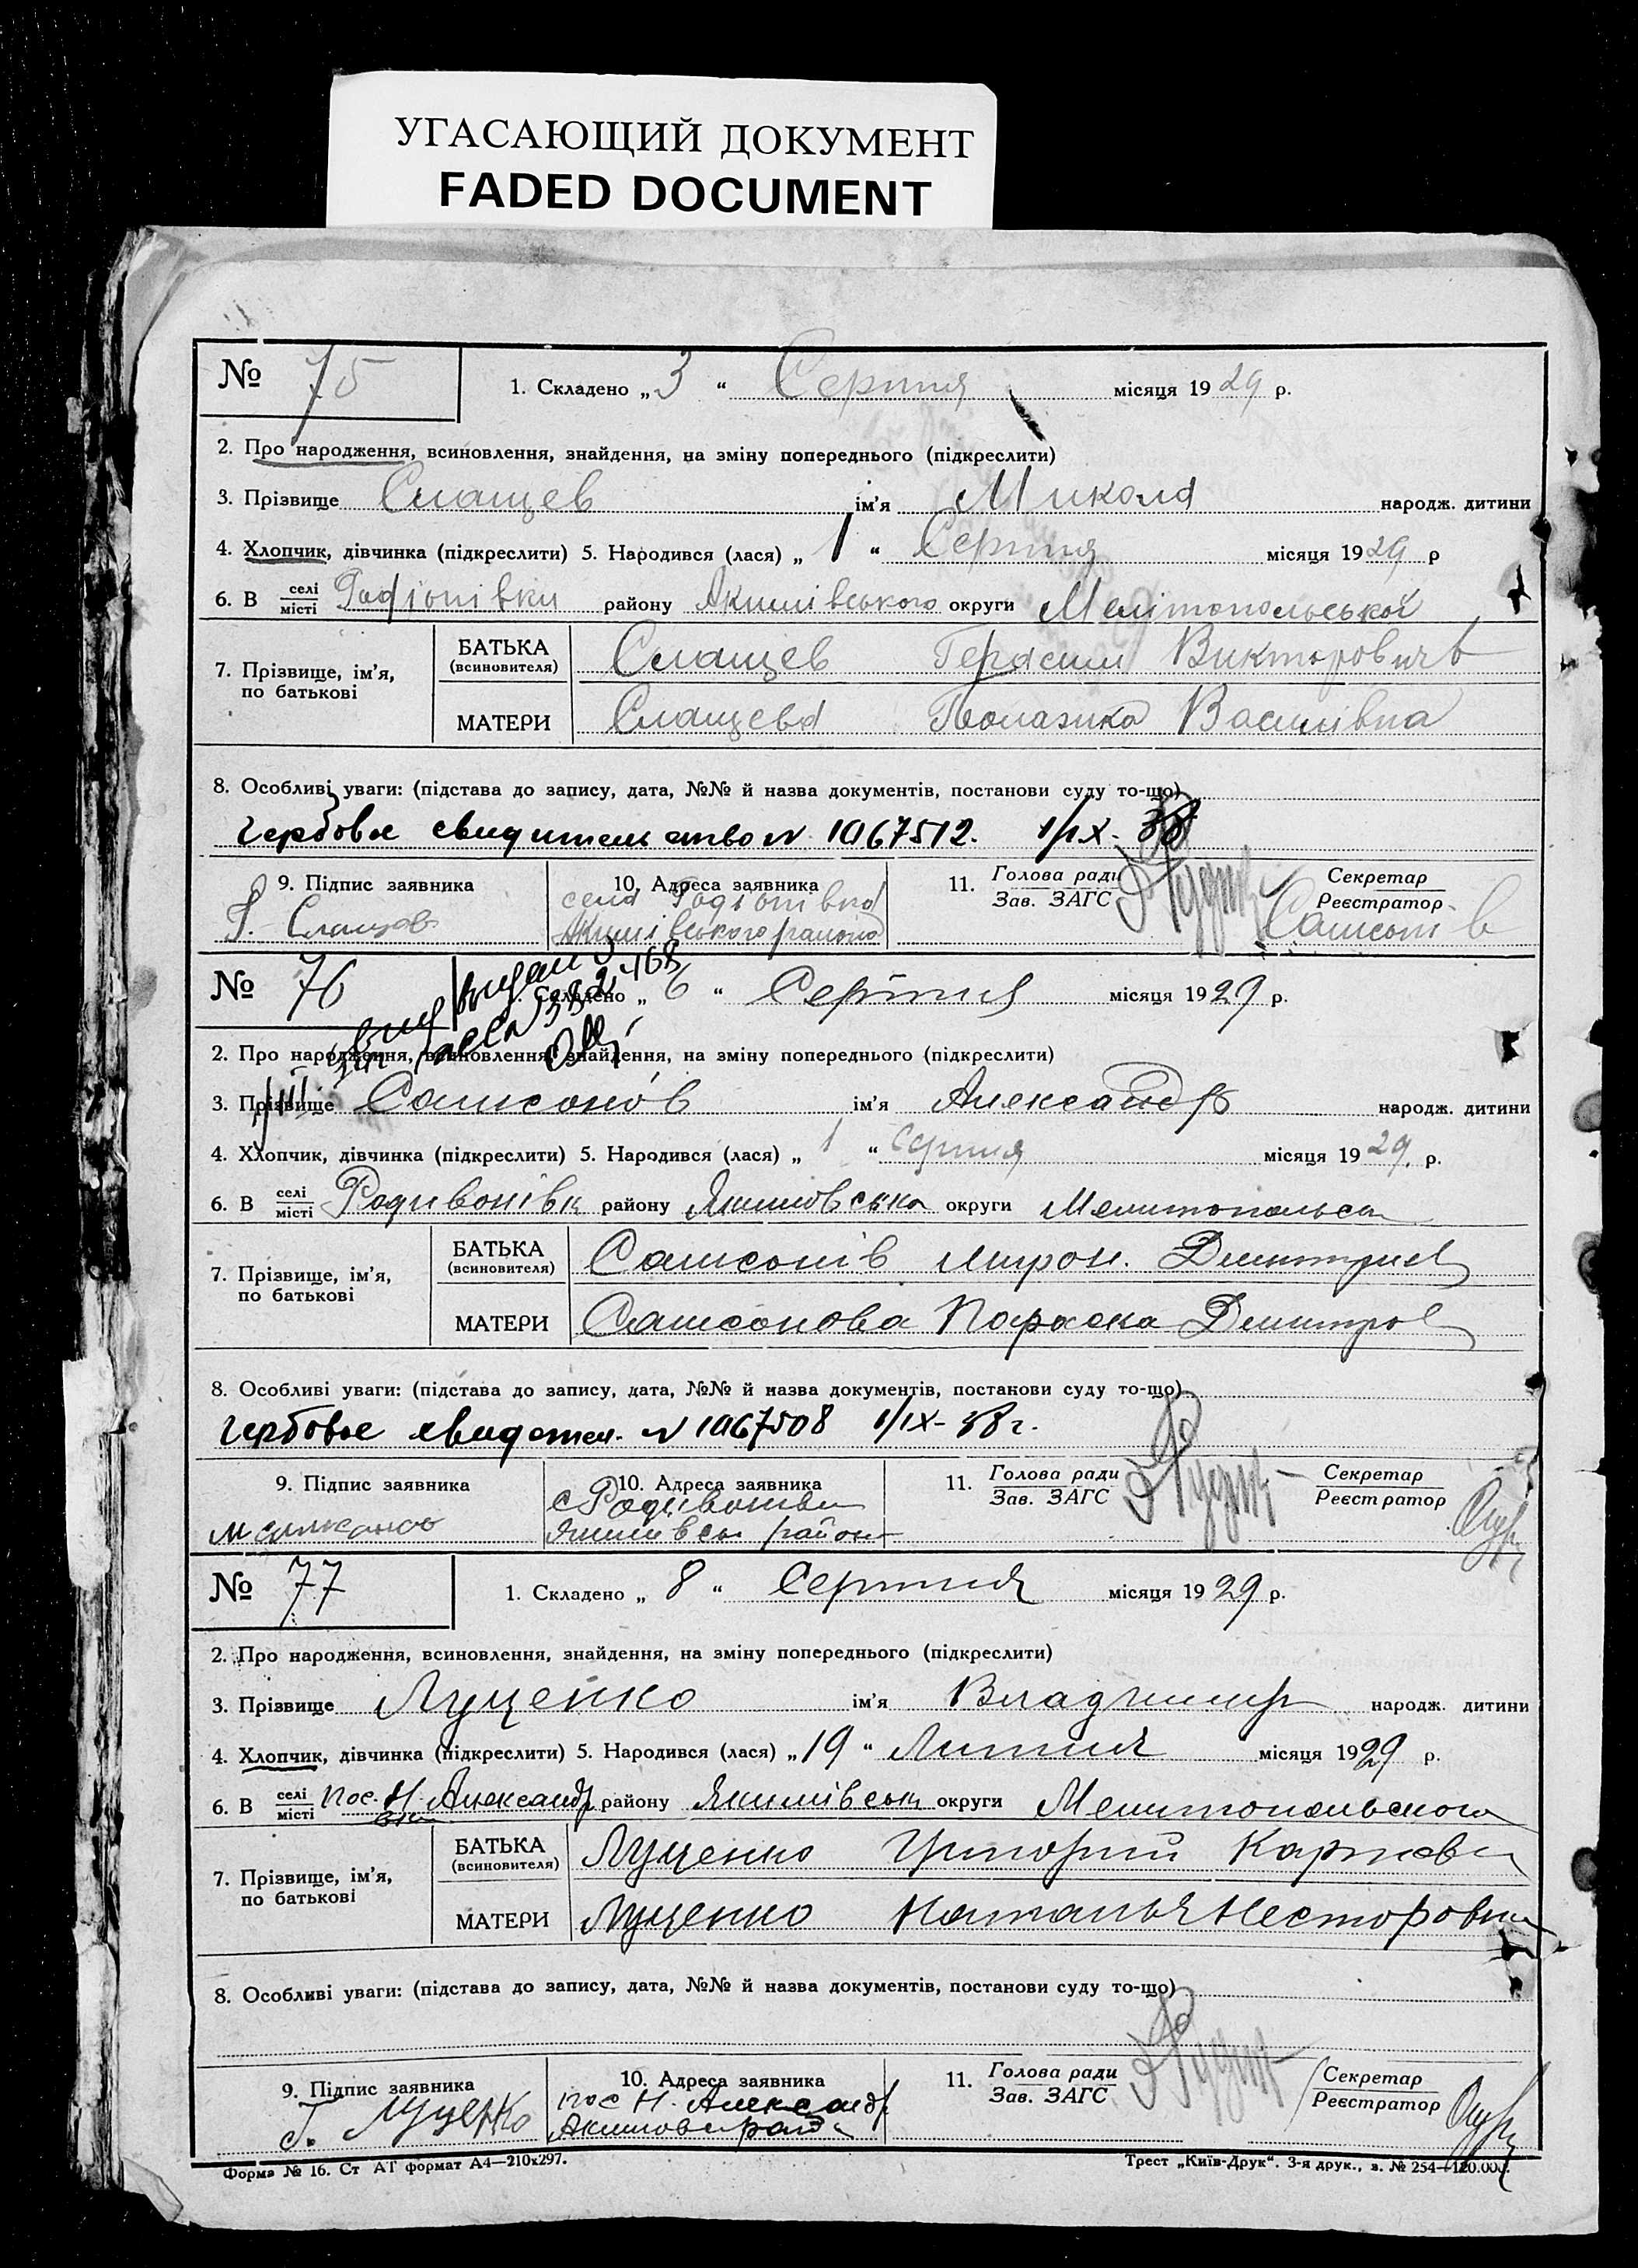 УГАСАЮЩИЙ ДОКУМЕНТ
FADED DOCUMENT
№ 75 1. Складено „3“ Серпня місяця 1929 р.
2. Про народження, всиновлення, знайдення, на зміну попереднього (підкреслити)
3. Прізвище Слащев ім'я Микола народж. дитини
4. Хлопчик, дівчинка (підкреслити) 5. Народився (лася) „1“ Серпня місяця 1929 р
6. В селі місті Радіонівки району Акимівського округи Мелітопольської
7. Прізвище, ім'я, по батькові
БАТЬКА (всиновителя) Слащев Герасим Викторович
МАТЕРИ Слащева Василівна
8. Особливі уваги: (підстава до запису, дата, №№ й назва документів, постанови суду то-що)
Гербовое свидительство N 1067512. 1/IX- 38
9. Підпис заявника 10. Адреса заявника 11. Голова ради Зав. ЗАГС Секретар Реєстратор
Г. Слащов села Радіонівка Самсонів
Акимівського района
№ 76 1. Складено „6“ Серпня місяця 1929 р.
2. Про народження, всиновлення, знайдення, на зміну попереднього (підкреслити)
3. Прізвище Самсонов ім'я Александр народж. дитини
4. Хлопчик, дівчинка (підкреслити) 5. Народився (лася) „1“ серпня місяця 1929 р.
6. В селі місті Родивонівк району Якимовська округи Мелитопольск
7. Прізвище, ім'я, по батькові
БАТЬКА (всиновителя) Самсонів Мирон. Дмитриев
МАТЕРИ Самсонова Параска Дмитров
8. Особливі уваги: (підстава до запису, дата, №№ й назва документів, постанови суду то-що)
Гербовое свидетел. N 1067508 1/IX-38 г.
9. Підпис заявника 10. Адреса заявника 11. Голова ради Зав. ЗАГС Секретар Реєстратор
с Родивонівки
район
№ 77 1. Складено „8“ Серпня місяця 1929 р.
2. Про народження, всиновлення, знайдення, на зміну попереднього (підкреслити)
3. Прізвище Луценко ім'я Владимир народж. дитини
4. Хлопчик, дівчинка (підкреслити) 5. Народився (лася) „19“ Липня місяця 1929 р.
6. В селі місті Пос. Н. Александр району Якимівськ округи Мелитопольского
7. Прізвище, ім'я, по батькові
БАТЬКА (всиновителя) Луценко Григорий Карпови
МАТЕРИ Луценко Наталья Несторовна
8. Особливі уваги: (підстава до запису, дата, №№ й назва документів, постанови суду то-що)
9. Підпис заявника 10. Адреса заявника 11. Голова ради Зав. ЗАГС Секретар Реєстратор
Г. Луценко пос Н. Александр
Форма № 16. Ст АТ формат А4—210х297. Трест „Київ-Друк“. 3-я друк., з. № 254—120.000.